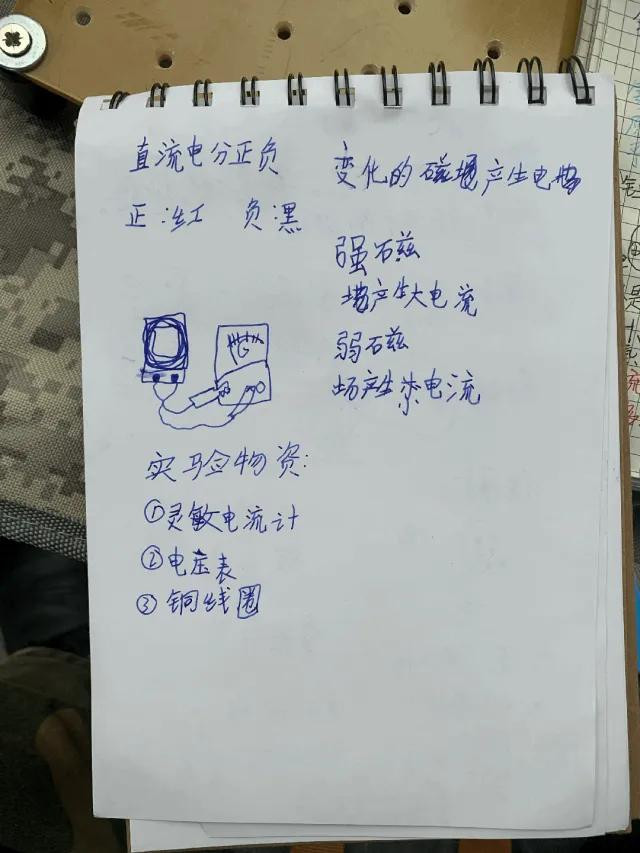 直流电分正负
正:红 负:黑
变化的磁场产生电
强磁
场产生大电流
弱磁
场产生 电流
实验物资:
①灵敏电流计
②电压表
③铜线圈